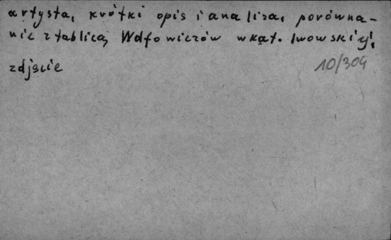 artysta, krótki opis i analiza, porówna-
nie z tablicą Wdfowiczów w kat. lwowskiej,
zdjęcie
10/304